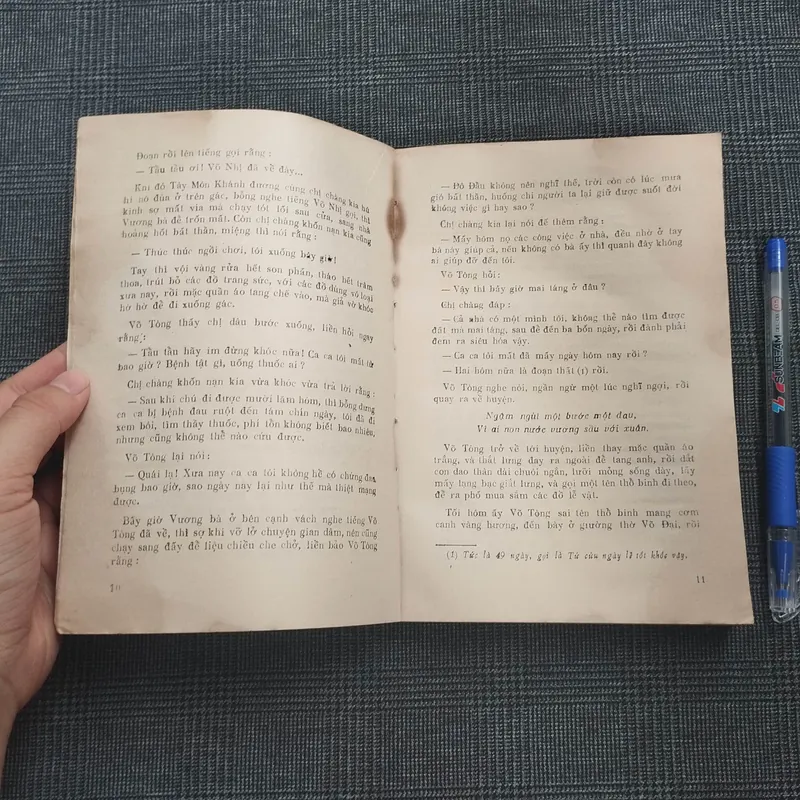 Đoạn rồi lên tiếng gọi rằng :
— Tẩu tẩu ơi! Võ Nhị đã về đây...
Khi đó Tây Môn Khánh đương cùng chị chàng kia hú
hí nô đùa ở trên gác, bỗng nghe tiếng Võ Nhị gọi, thì
kinh sợ mất vía mà chạy tót lối sau cửa, sang nhà
Vương bà để trốn mất. Còn chị chàng khốn nạn kia cũng
hoảng hồi bất thần, miệng thì nói rằng :
— Thúc thúc ngồi chơi, tôi xuống bây giờ!
Tay thì vội vàng rửa hết son phấn, tháo hết trâm
thoa, trút bỏ các đồ trang sức, với các đồ dùng vô loại
xưa nay, rồi mặc quần áo tang chế vào, mà giả vờ khóc
hờ hờ để đi xuống gác.
Võ Tòng thấy chị dâu bước xuống, liền hỏi ngay
rằng :
— Tẩu tẩu hãy im đừng khóc nữa! Ca ca tôi mất từ
bao giờ ? Bệnh tật gì, uống thuốc ai ?
Chị chàng khốn nạn kia vừa khóc vừa trả lời rằng :
— Sau khi chú đi được mười lăm hôm, thì bỗng dưng
ca ca bị bệnh đau ruột đến tám chín ngày, tôi đã đi
xem bói, tìm thầy thuốc, phí tổn không biết bao nhiêu,
nhưng cũng không thể nào cứu được.
Võ Tòng lại nói :
— Quái lạ! Xưa nay ca ca tôi không hề có chứng đau
bụng bao giờ, sao ngày nay lại như thế mà thiệt mạng
được.
Bấy giờ Vương bà ở bên cạnh vách nghe tiếng Võ
Tòng đã về, thì sợ khi vỡ lở chuyện gian dâm, nên cũng
chạy sang đấy để liệu chiều che chở, liền bảo Võ Tòng
rằng :
10
— Đô Đầu không nên nghĩ thế, trời còn có lúc mưa
gió bất thần, huống chi người ta lại giữ được suốt đời
không việc gì hay sao ?
Chị chàng kia lại nói để thêm rằng :
— Mấy hôm nọ các công việc ở nhà, đều nhờ ở tay
bà này giúp cả, nếu không có bà ấy thì quanh đây không
ai giúp đỡ đến tôi.
Võ Tòng hỏi :
— Vậy thì bây giờ mai táng ở đâu ?
Chị chàng đáp :
— Cả nhà có một mình tôi, không thể nào tìm được
đất mà mai táng, sau để đến ba bốn ngày, rồi đành phải
đem ra siêu hóa vậy.
— Ca ca tôi mất đã mấy ngày hôm nay rồi ?
— Hai hôm nữa là đoạn thất (1) rồi.
Võ Tòng nghe nói, ngần ngừ một lúc nghĩ ngợi, rồi
quay ra về huyện.
Ngậm ngùi một bước một đau,
Vì ai non nước vương sầu với xuân.
Võ Tòng trở về tới huyện, liền thay mặc quần áo
trắng, và thắt lưng day ra ngoài để tang anh, rồi dắt
con dao thân dài chuôi ngắn, lưỡi mỏng sống dày, lấy
mấy lạng bạc giắt lưng, và gọi một tên thổ binh đi theo,
để ra phố mua sắm các đồ lễ vật.
Tối hôm ấy Võ Tòng sai tên thổ binh mang cơm
canh vàng hương, đến bày ở giường thờ Võ Đại, rồi
(1) Tức là 49 ngày, gọi là Tứ cửu ngày lễ tốt khốc vậy.
11